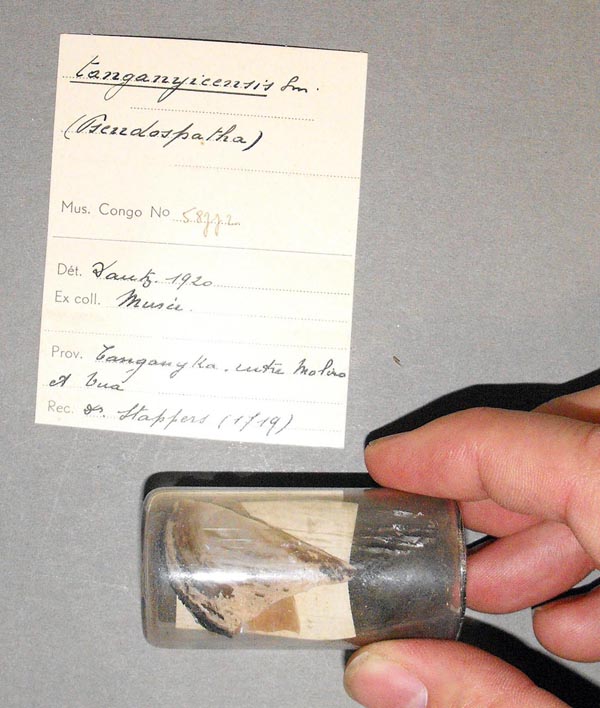 tanganyicensis Sm.
(Pseudospatha)
Mus. Congo No
Dét. Dautz. 1920
Ex coll. Musée.
Prov. Tanganyka. entre Moliro
et Vua
Rec. Dr. Stappers (1919)